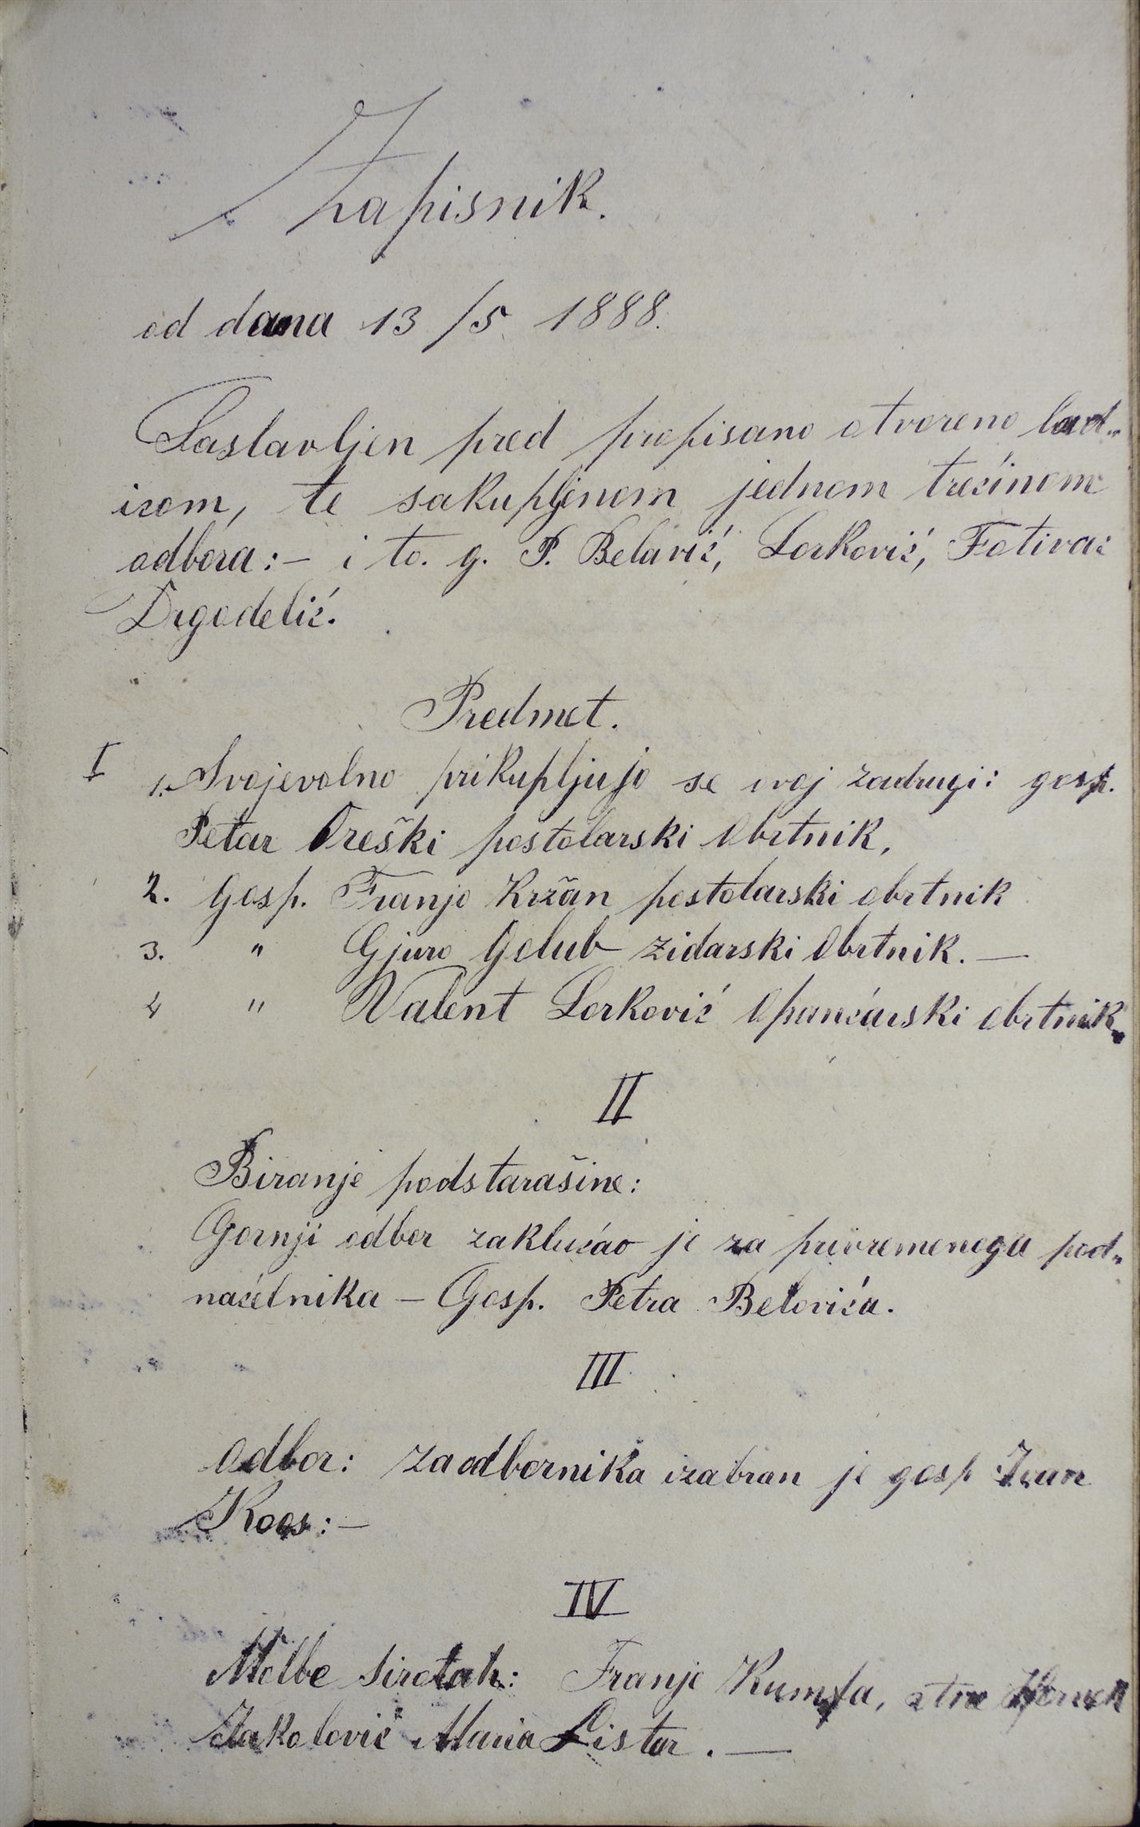 Zapisnik.
od dana 13/5 1888.
Sastavljen pred propisano otvoreno lad„
icom, te sakupljenom jednom trećinom
odbora:– i to. g. P. Belavić, Lorković, Fotivac
Drgodelić.
Predmet.
I 1. Svojevolno prikupljuje se ovoj zadrugi: gosp.
Petar Oreški postolarski Obrtnik,
2. Gosp. Franjo Kržan postolarski obrtnik
3. " Gjuro Golub zidarski Obrtnik. —
4 " Valent Lorković Opančarski obrtnik.
II
Biranje podstarašine:
Gornji odbor zaklućao je za privremenoga pod„
načelnika – Gosp. Petra Belovića.
III
Odbor: za odbornika izabran je gosp Ivan
Koos:–
IV
Molbe sirotah: Franjo Kumfa,
Jakolović Maria Listar. —